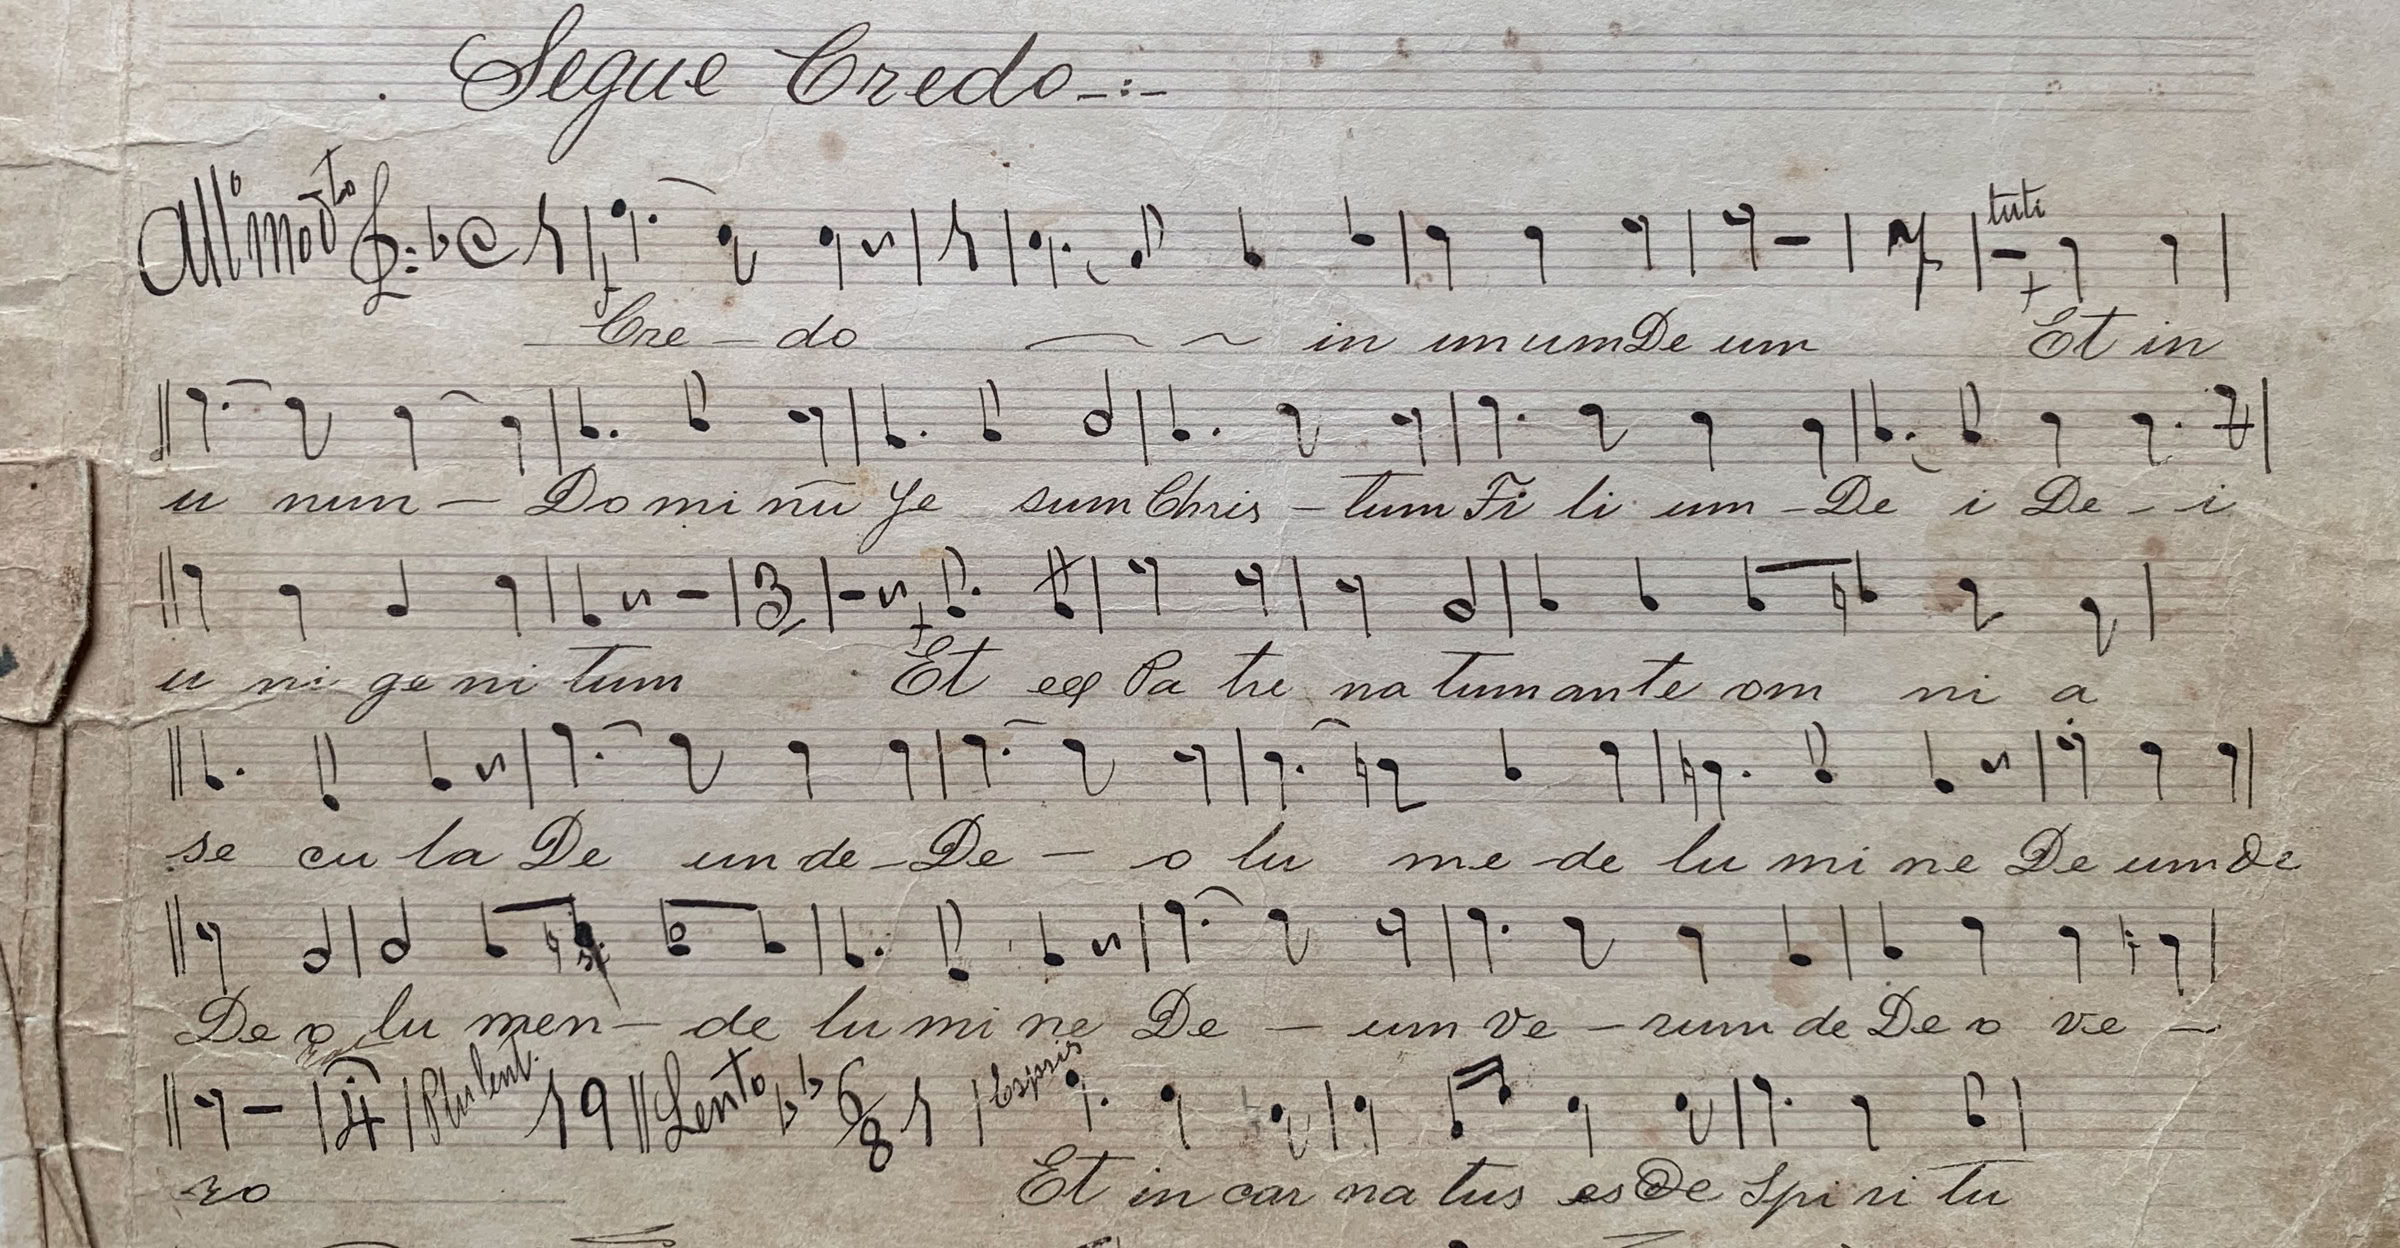 Segue Credo -:-
All.º mod.to
tuti
Cre - do in unum De um Et in
u num - Do mi nū Je sum Chris - tum Fi li um - De i De - i
u ni ge ni tum 3 Et ex Pa tre na tum ante om ni a
se cu la De um de - De - o lu me - de lu mi ne De um de
De o lu men - de lu mi ne De - um ve - rum de De o ve -
4 19 Lento 6/8
ro Et in car na tus es De Spi ri tu